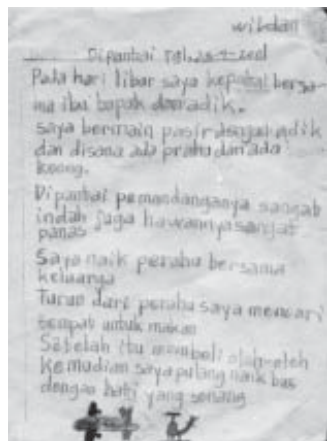 wildan
Dipantai Tgl,
Pada hari libur saya kepantai bersa-
ma ibu bapak dan adik.
saya bermain pasir dengan adik
dan disana ada prahu dan ada
keong.
Dipantai pemandanganya sangat
indah juga hawannya sangat
panas
Saya naik perahu bersama
keluarga
Turun dari perahu saya mencari
tempat untuk makan
Setelah itu membeli oleh-oleh
kemudian saya pulang naik bus
dengan hati yang senang